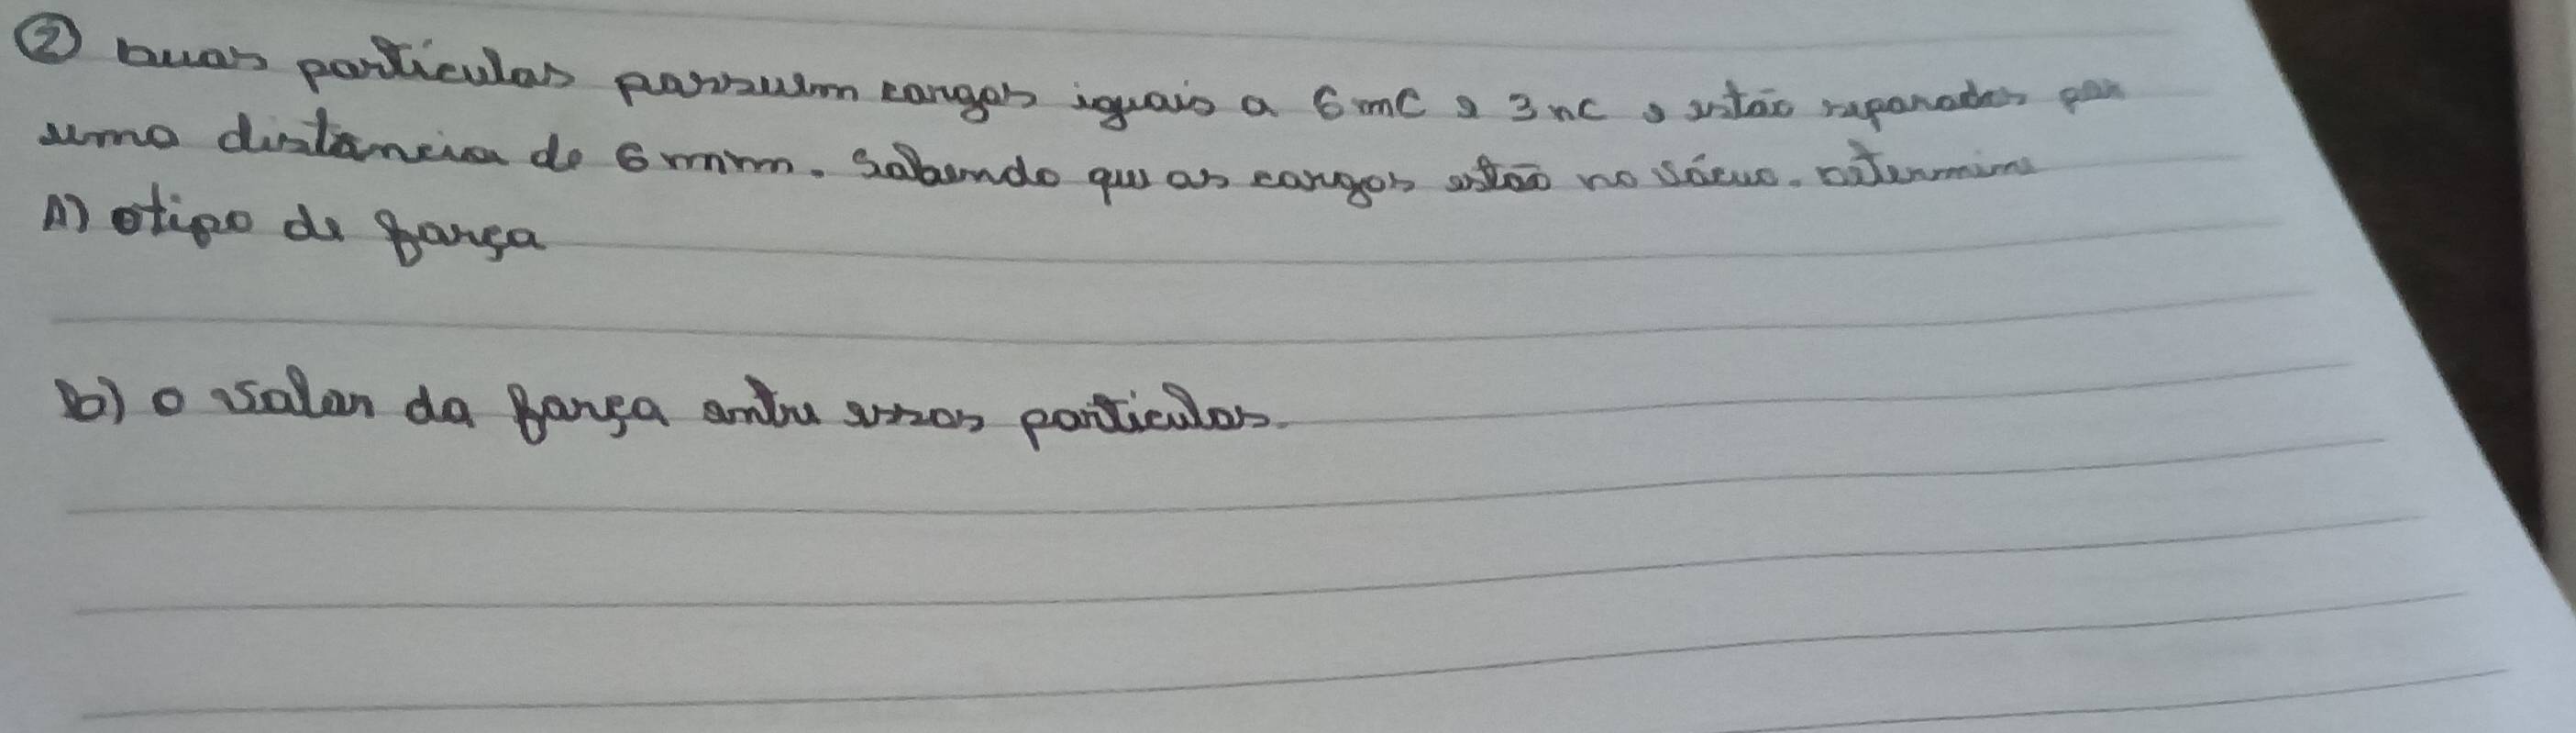 ② Duas partículas possuem cargas iguais a 6 mC e 3 nC e estão separadas por
uma distância de 6 mm. Sabendo que as cargas estão no vácuo. Determine
A) o tipo de força
b) o valor da força entre essas partículas.